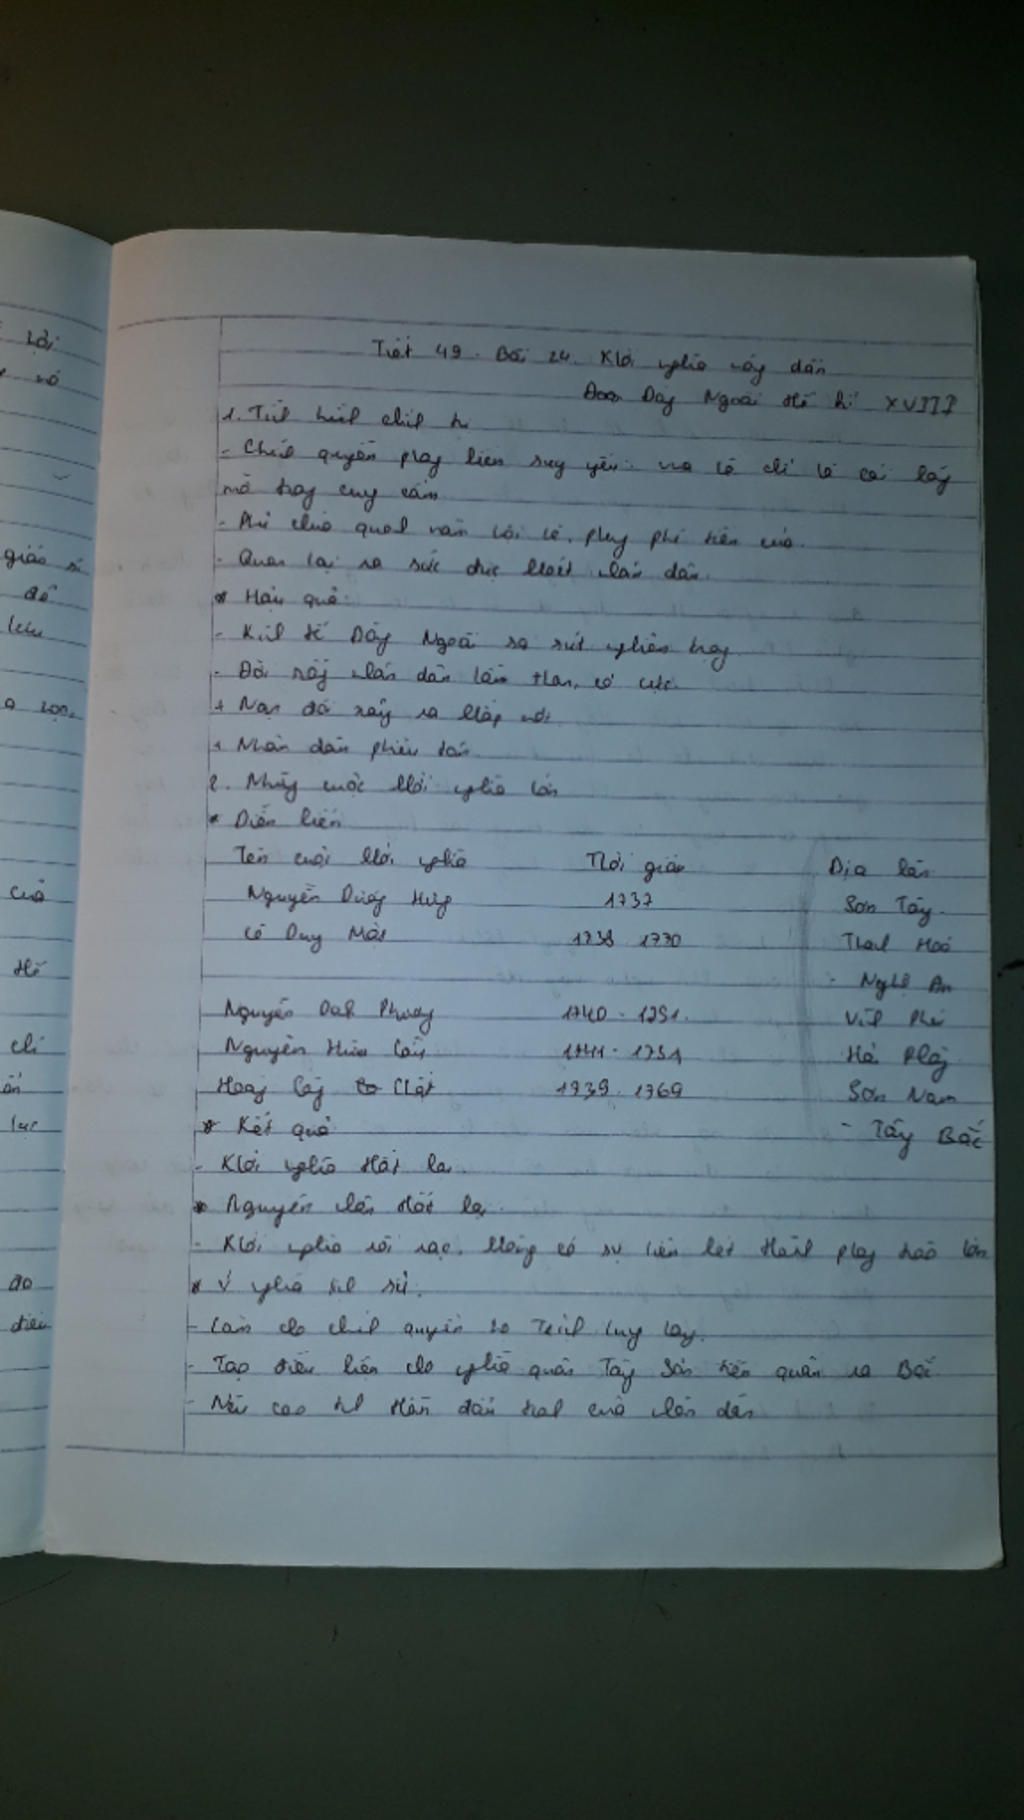 Tiết 49. Bài 24. Khởi nghĩa nông dân
Đàng Ngoài thế kỉ XVIII
1. Tình hình chính trị
- Chính quyền phong kiến suy yếu: vua Lê chỉ là cái bóng
mờ trong cung cấm
- Phủ chúa quanh năm hội hè, phung phí tiền của.
- Quan lại ra sức đục khoét nhân dân.
* Hậu quả:
- Kinh tế Đàng Ngoài sa sút nghiêm trọng
- Đời sống nhân dân lầm than, cơ cực.
+ Nạn đói xảy ra khắp nơi
+ Nhân dân phiêu tán
2. Những cuộc khởi nghĩa lớn
* Diễn biến
Tên cuộc khởi nghĩa Thời gian Địa bàn
Nguyễn Dương Hưng 1737 Sơn Tây
Lê Duy Mật 1738 - 1770 Thanh Hoá
- Nghệ An
Nguyễn Danh Phương 1740 - 1751. Vĩnh Phú
Nguyễn Hữu Cầu 1741 - 1751 Hải Phòng
Hoàng Công Chất 1739 - 1769 Sơn Nam
* Kết quả - Tây Bắc
- Khởi nghĩa thất bại
* Nguyên nhân thất bại
- Khởi nghĩa rời rạc, không có sự liên kết thành phong trào lớn
* Ý nghĩa lịch sử.
- Làm cho chính quyền họ Trịnh lung lay.
- Tạo điều kiện cho nghĩa quân Tây Sơn tiến quân ra Bắc
- Nêu cao tinh thần đấu tranh của nhân dân
giáo sĩ
để
của
thế
chỉ
lực
do
điều